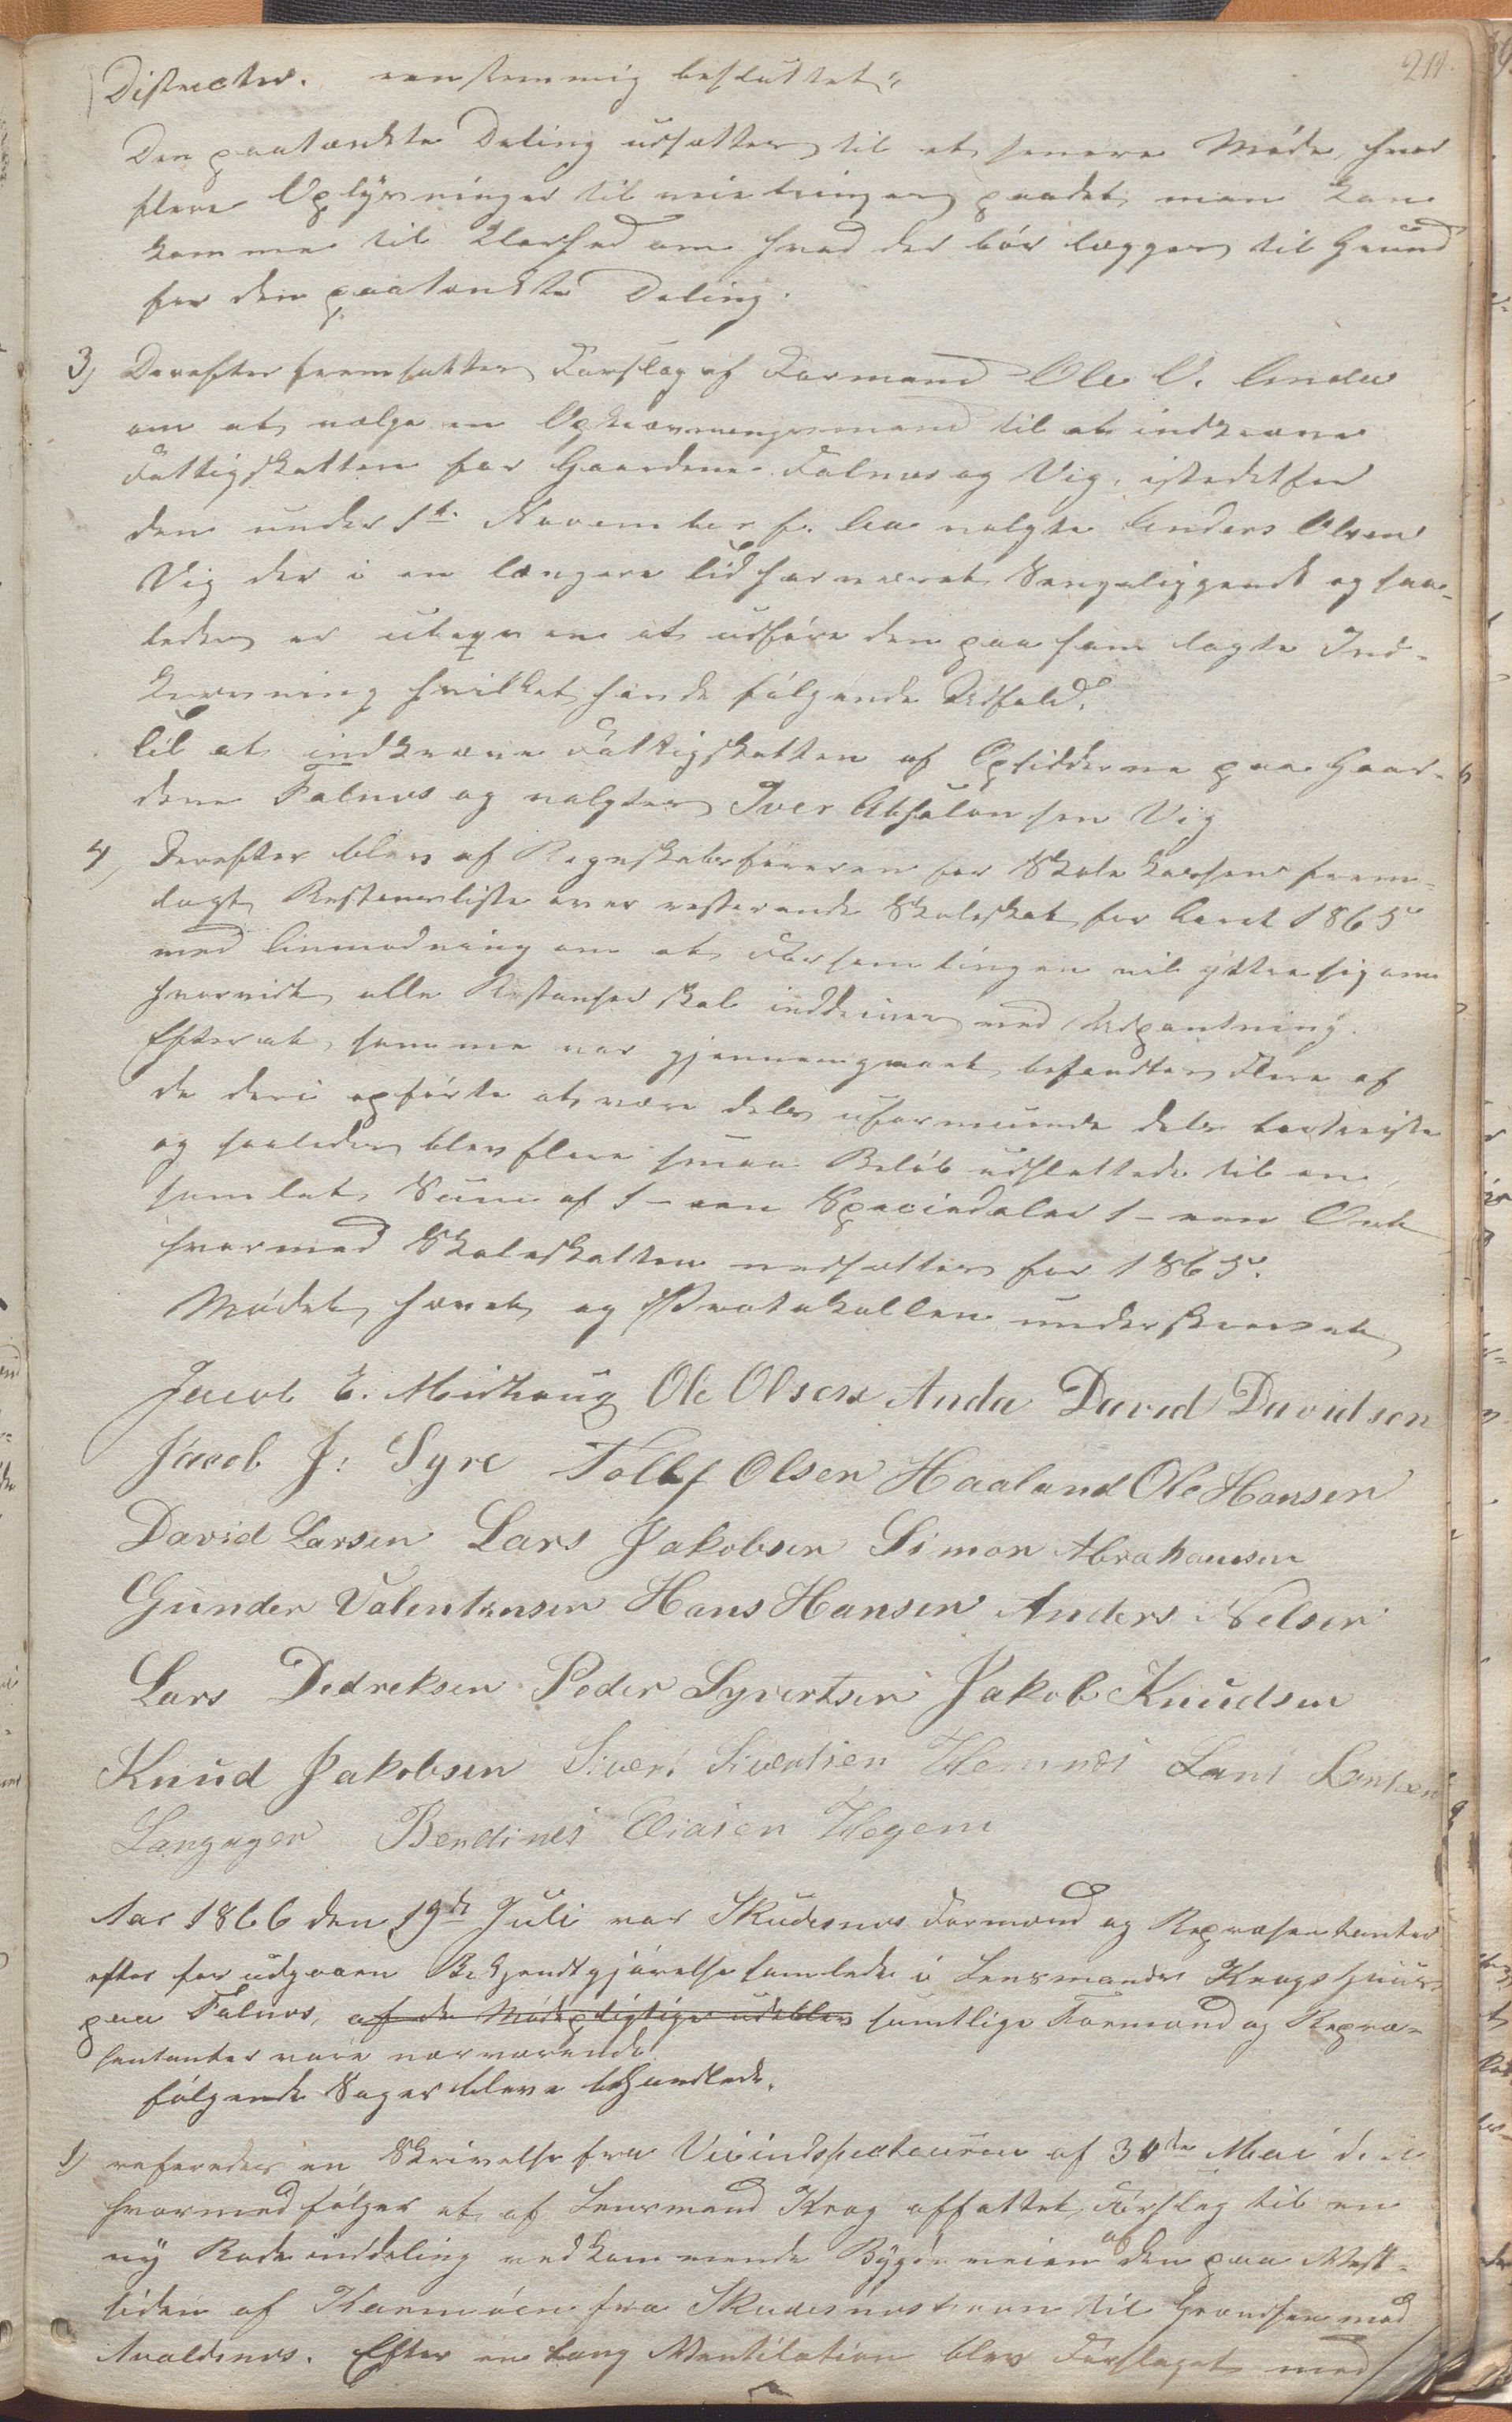 211.
Districter. eenstemmig besluttet:
Den paatænkte Deling udsættes til et senere Møde, hvor
flere Oplysninger til veiebringes paadet man kan
komme til Klarhed om hvad der bør lægges til Grund
for den paatænkte Deling.
3) Derefter fremsattes Forslag af Formand Ole O. Anda
om at vælge en Opkrævningsmand til at indkræve
Fattigskatten for Gaardene Falnæs og Vig, istedetfor
den under 1ste November f. Aar valgte Anders Olsen
Vig der i en længere Tid har været Sengeliggende og saa-
ledes er ude af Stand at udføre den paa ham lagte Ind-
krævning hvilket havde følgende Udfald.
Til at indkræve Fattigskatten af Opsidderne paa Gaar-
dene Falnæs og valgtes Iver Absalonsen Vig
4) Derefter blev af Regnskabsføreren for Skolekassen frem-
lagt Restanseliste over resterende Skoleskat for Aaret 1865
med Anmodning om at Forsamlingen vil yttre sig om
hvorvidt alle Restanser skal inddrives ved Udpantning.
Efterat samme var gjennemgaaet befandtes Flere af
de deri opførte at være dels uformuende dels bortreiste
og saaledes blev flere smaa Beløb udslettede til en
samlet Sum af 1 - een Speciedaler 1 - een Ort
hvormed Skoleskatten nedsættes for 1865.
Mødet hævet og Protokollen underskrevet
Jacob E. Mirhaug Ole Olsen Anda David Davidsen
Jacob J: Syre Tollef Olsen Haaland Ole Hansen
David Larsen Lars Jakobsen Simon Abrahamsen
Gunder Valentinsen Hans Hansen Anders Nelsen
Lars Dedreksen Peder Syvertsen Jakob Knudsen
Knud Jakobsen Siver Sivertsen Hemnes Lars Larsen
Langager Berdines Eliasen Hegem
Aar 1866 den 19de Juli var Skudesnæs Formænd og Repræsentanter
efter forudgaaen Bekjendtgjørelse samlede i Lensmands Krags Huus
paa Falnæs, af de Mødepligtige udeblev samtlige Formænd og Repræ-
sentanter vare nærværende.
følgende Sager bleve behandlede.
1) refereredes en Skrivelse fra Veiindspecteuren af 30te Mai d. A.
hvormed følger et af Lensmand Krag affattet Forslag til en
ny Rodeinddeling vedkommende Bygdeveien af den paa Vest-
siden af Karmøen fra Skudesnæshavn til Grændsen mod
Avaldsnæs. Efter en lang Ventilation blev Forslaget med